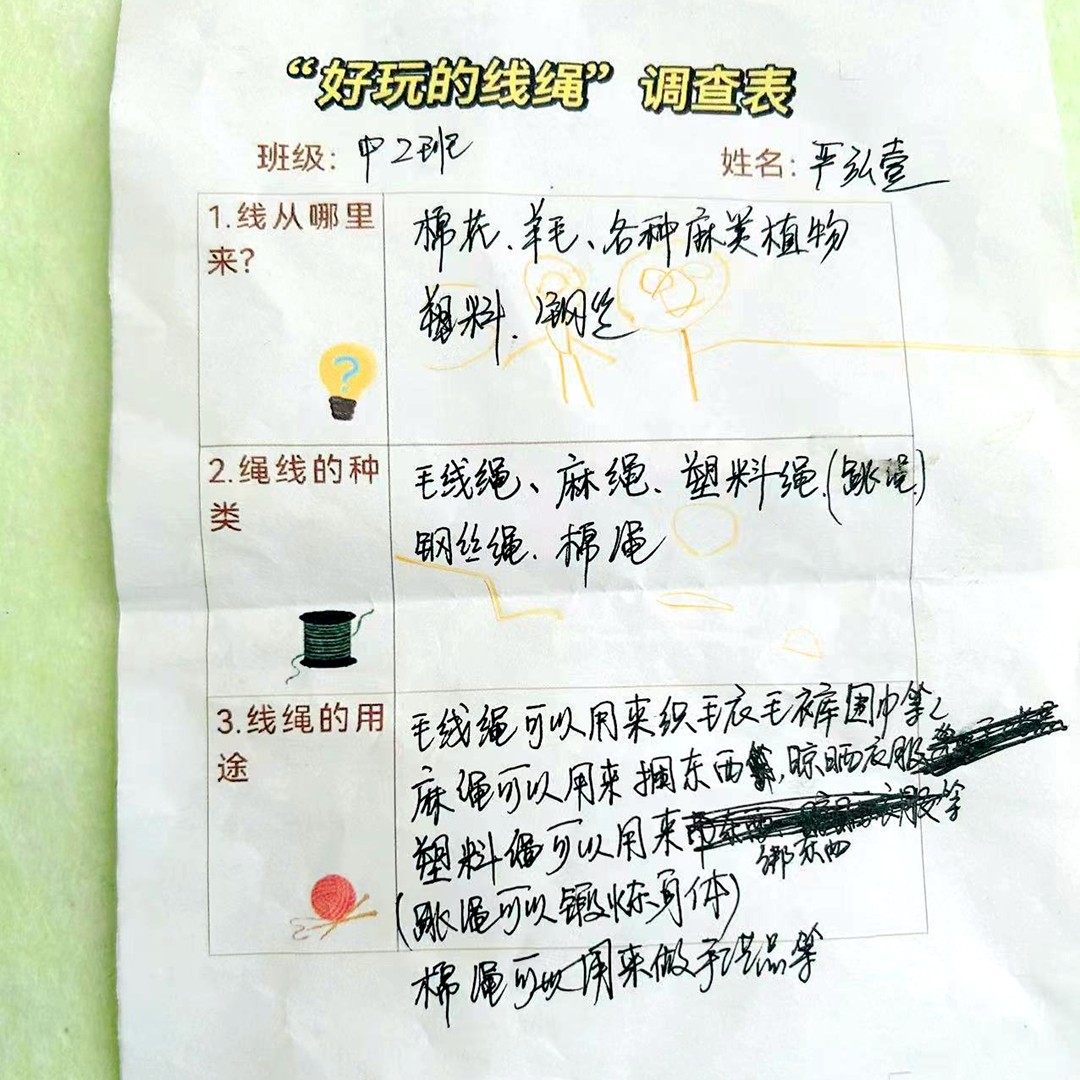 “好玩的线绳”调查表
班级: 中2班 姓名: 严弘壹
1.线从哪里来?
棉花、羊毛、各种麻类植物
塑料、钢丝
2.绳线的种类
毛线绳、麻绳、塑料绳(跳绳)
钢丝绳、棉绳
3.线绳的用途
毛线绳可以用来织毛衣毛裤围巾等
麻绳可以用来捆东西,晾晒衣服
塑料绳可以用来绑东西等
(跳绳可以锻炼身体)
棉绳可以用来做手工品等